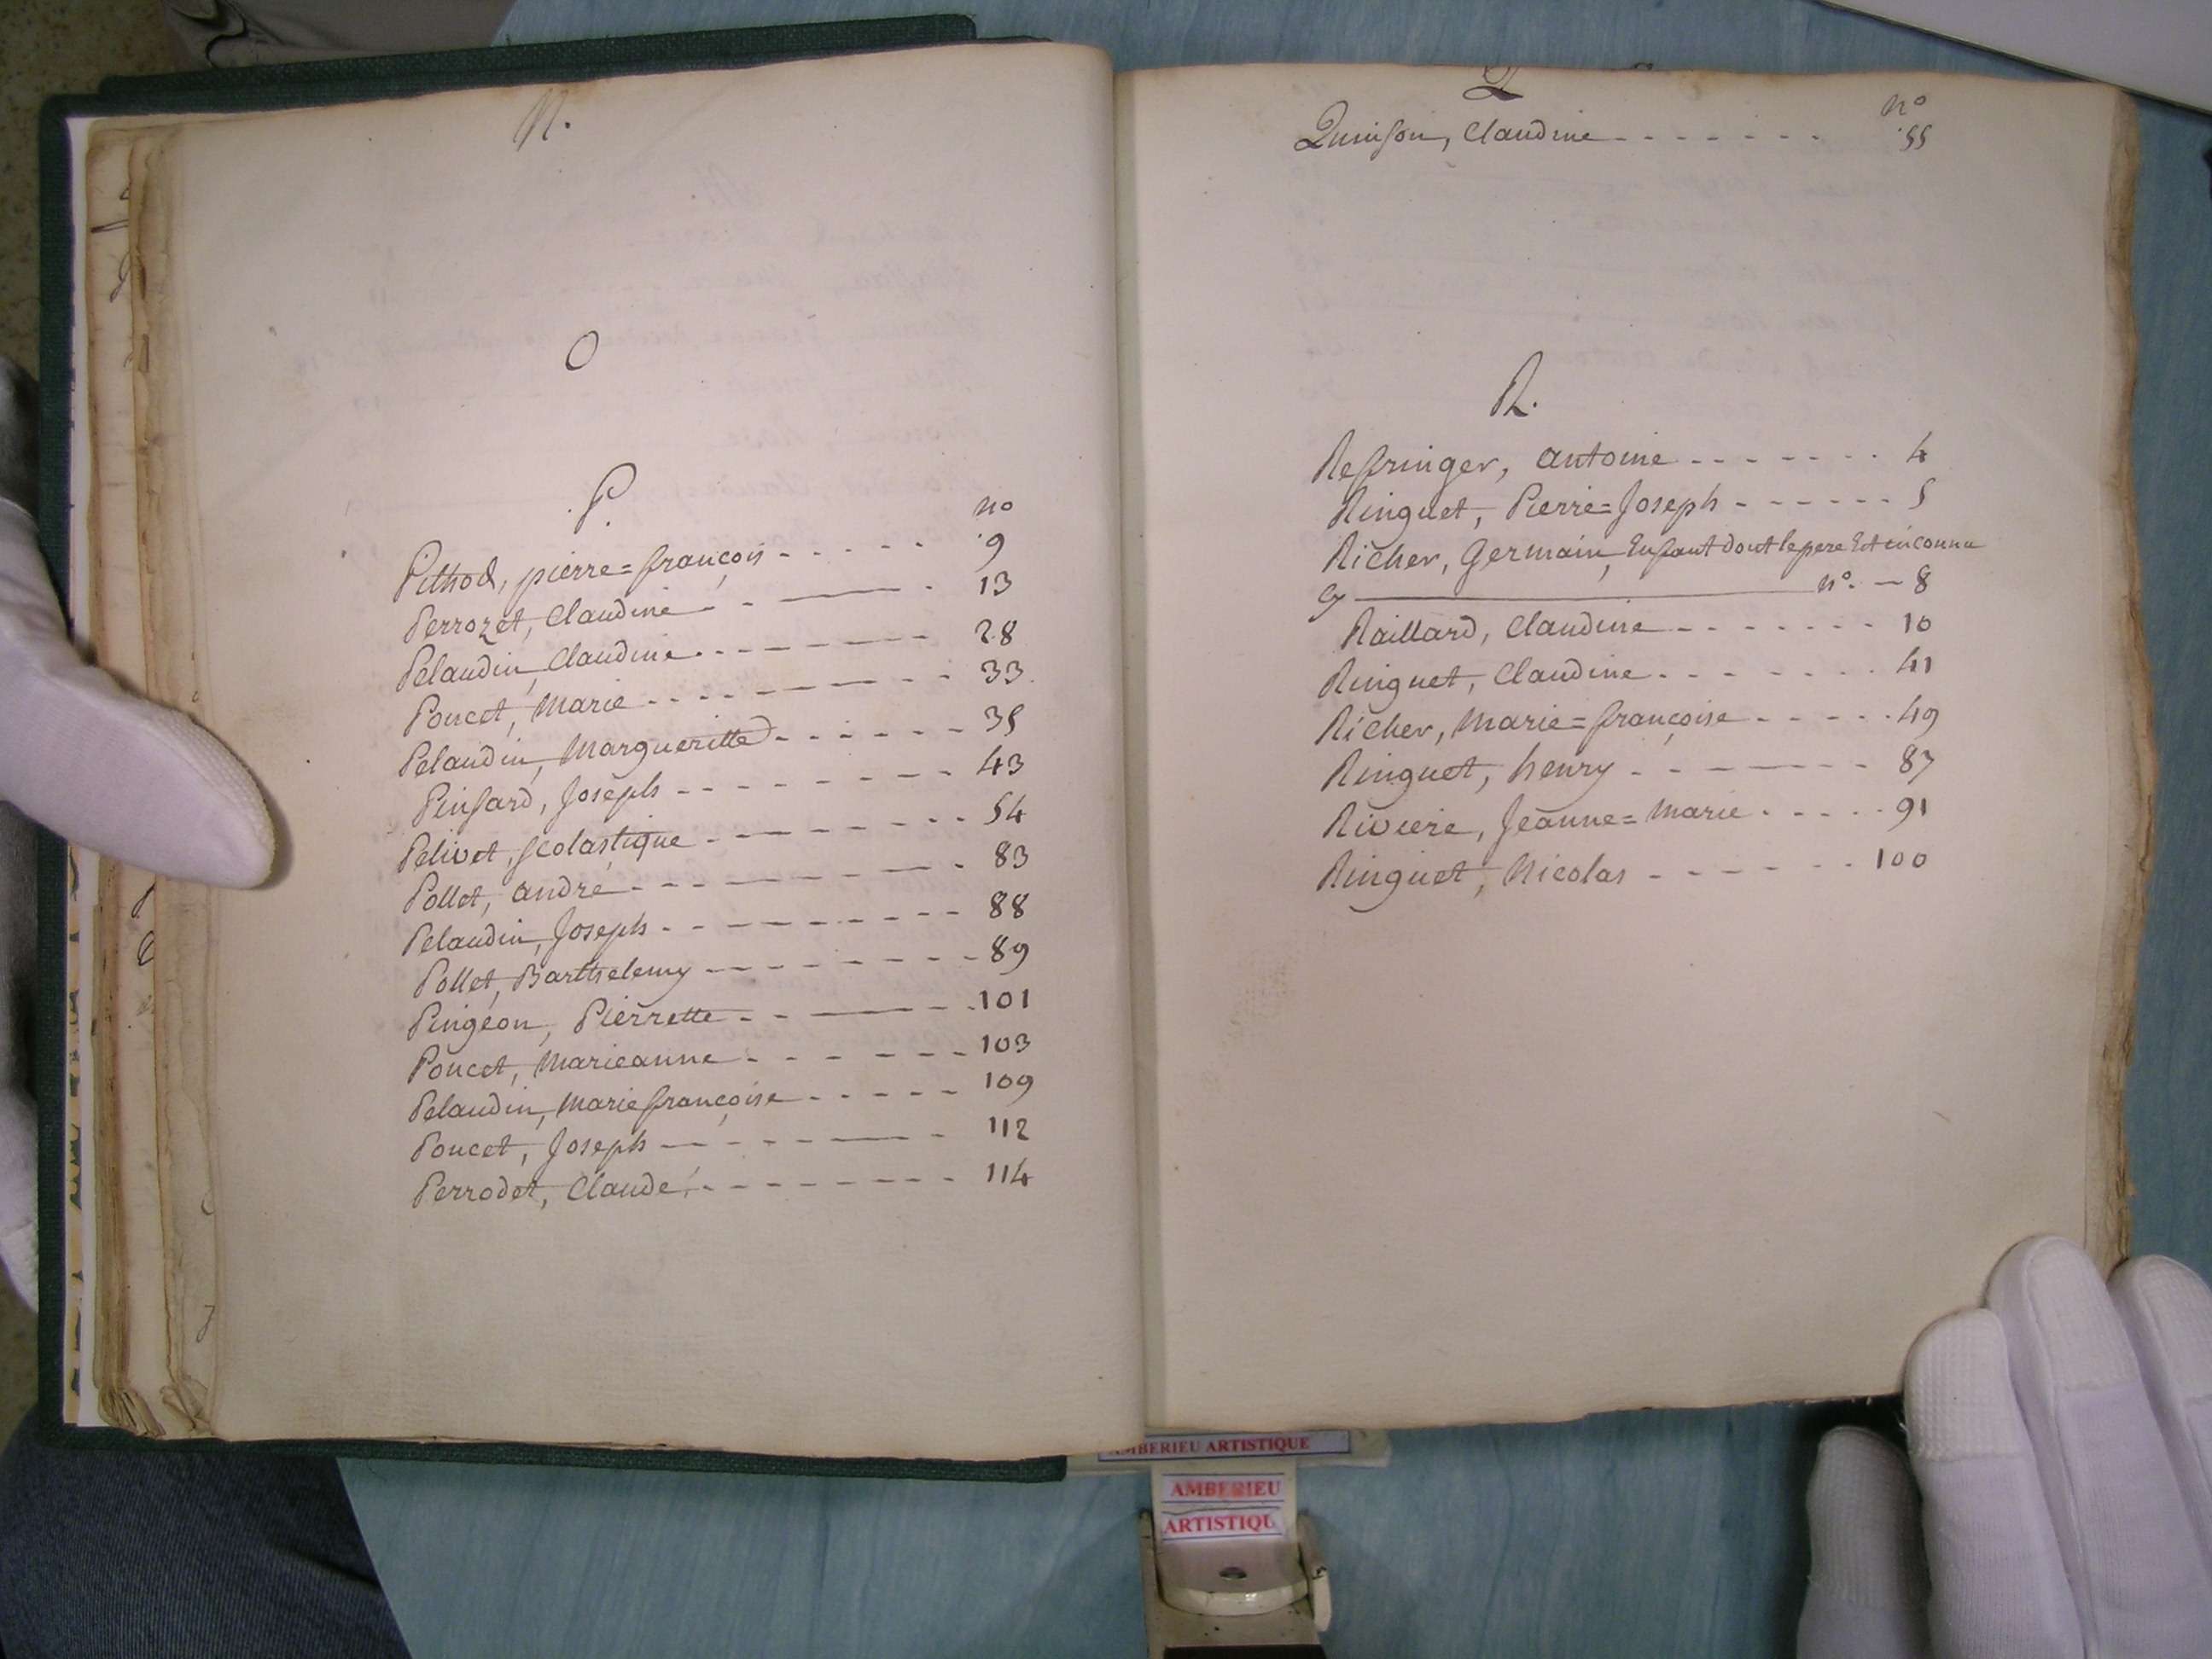 N.
O
P.
no
Pithod, pierre=françois - - - - - 9
Perrozet, Claudine - - - 13
Pelaudin, Claudine - - - - - - - 28
Poncet, Marie - - - - - - - - - 33
Pelaudin, Margueritte - - - - - - 35
Pinsard, Joseph - - - - - - - - 43
Pelivet, scolastique - - - - - - - - 54
Pollet, andré - - - - - - - - - 83
Pelaudin, Joseph - - - - - - - - - 88
Pollet, Barthelemy - - - - - - - - 89
Pingeon, Pierrette - - - - - 101
Poncet, Marieanne - - - - - - 103
Pelaudin, Mariefrançoise - - - - - 109
Poncet, Joseph - - - - - - - 112
Perrodet, Claude - - - - - - - - 114
Q
no
Quinson, Claudine - - - - - - - 55
R.
Refringer, antoine - - - - - - - 4
Ringuet, Pierre=Joseph - - - - - - 5
Richer, Germain, Enfant dont le pere Est inconnu
Cy no. - 8
Raillard, Claudine - - - - - - - 10
Ringuet, Claudine - - - - - - - 41
Richer, Marie=françoise - - - - - 49
Ringuet, henry - - - - - - 87
Riviere, Jeanne=Marie - - - - - 91
Ringuet, Nicolas - - - - - - 100
AMBERIEU ARTISTIQUE
AMBERIEU
ARTISTIQU